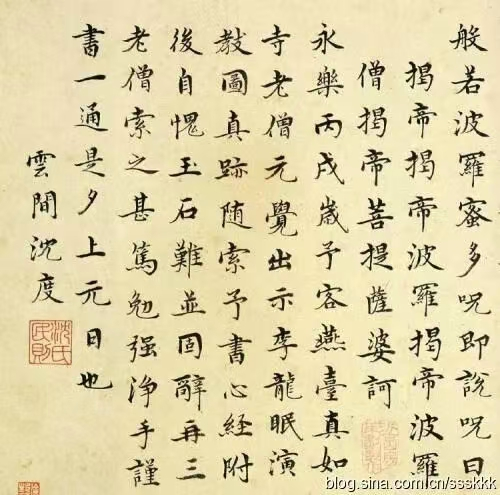 般若波羅蜜多呪即說呪曰
揭帝揭帝波羅揭帝波羅
僧揭帝菩提薩婆訶
永樂丙戌歲予客燕臺真如
寺老僧元覺出示李龍眠演
教圖真跡随索予書心經附
後自愧玉石難並固辭再三
老僧索之甚篤勉强淨手謹
書一通是夕上元日也
雲間沈度
沈氏民則
blog.sina.com.cn/ssskkk